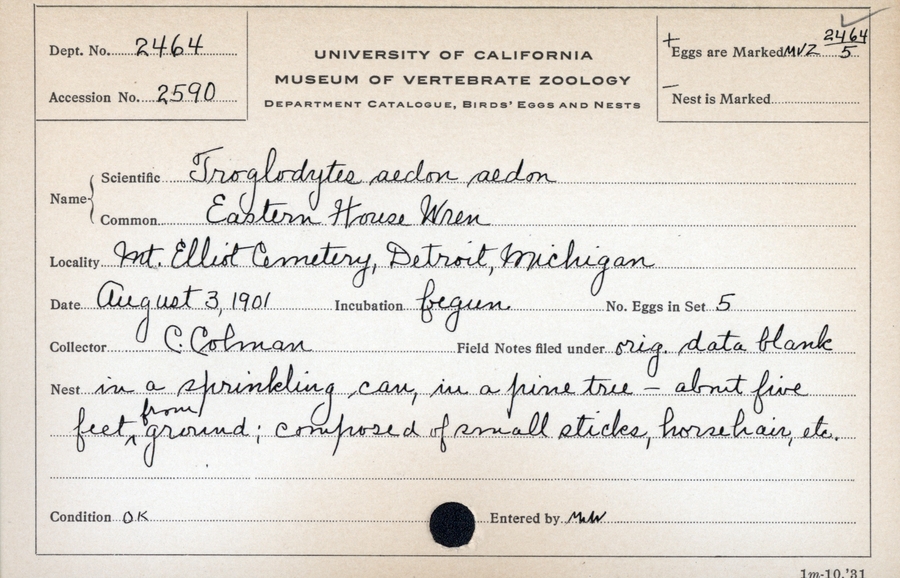 Dept. No. 2464
Accession No. 2590
UNIVERSITY OF CALIFORNIA
MUSEUM OF VERTEBRATE ZOOLOGY
DEPARTMENT CATALOGUE, BIRDS' EGGS AND NESTS
+ Eggs are Marked MVZ 2464/5
− Nest is Marked
Name
Scientific Troglodytes aedon aedon
Common Eastern House Wren
Locality Mt. Elliot Cemetery, Detroit, Michigan
Date August 3, 1901 Incubation begun No. Eggs in Set 5
Collector C. Colman Field Notes filed under orig. data blank
Nest in a sprinkling can, in a pine tree – about five
feet from ground; composed of small sticks, horsehair, etc.
Condition OK Entered by
1m-10,'31